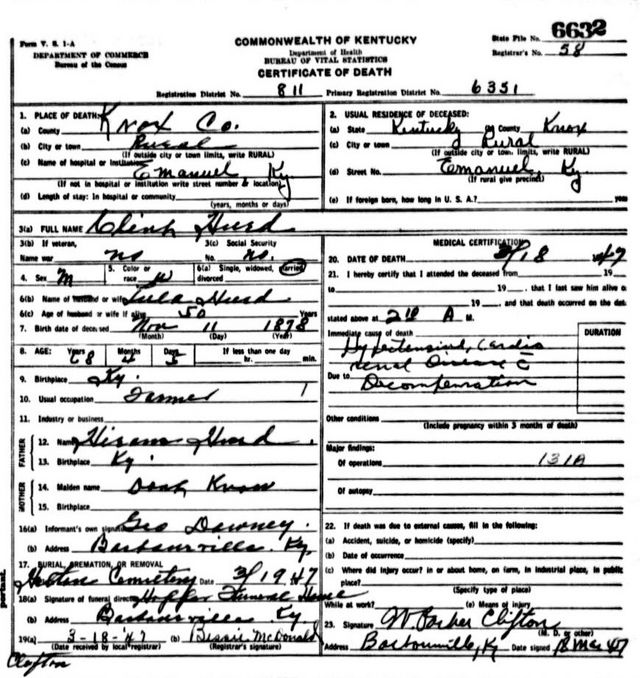 Form V. S. 1-A
DEPARTMENT OF COMMERCE
Bureau of the Census
COMMONWEALTH OF KENTUCKY
Department of Health
BUREAU OF VITAL STATISTICS
CERTIFICATE OF DEATH
State File No. 6632
Registrar's No. 58
Registration District No. 811 Primary Registration District No. 6351
1. PLACE OF DEATH:
(a) County Knox Co.
(b) City or town Rural
(If outside city or town limits, write RURAL)
(c) Name of hospital or institution
Emanuel, Ky
(If not in hospital or institution write street number & location)
(d) Length of stay: In hospital or community
(years, months or days)
2. USUAL RESIDENCE OF DECEASED:
(a) State Kentucky (b) County Knox
(c) City or town Rural
(If outside city or town limits, write RURAL)
(d) Street No. Emanuel, Ky
(If rural give precinct)
(e) If foreign born, how long in U. S. A.? years
3(a) FULL NAME Clint Hurd
3(b) If veteran,
Name war no
3(c) Social Security
No. no.
4. Sex M
5. Color or
race W
6(a) Single, widowed, married
divorced
6(b) Name of husband or wife Lula Hurd
6(c) Age of husband or wife if alive 50
7. Birth date of deceased Nov 11 1878
(Month) (Day) (Year)
8. AGE: Years Months Days If less than one day
68 4 5 hr. min.
9. Birthplace Ky.
10. Usual occupation Farmer
11. Industry or business
FATHER
12. Name Hiram Hurd
13. Birthplace Ky.
MOTHER
14. Maiden name Dont Know
15. Birthplace
16(a) Informant's own signature Geo Downey
(b) Address Barbourville Ky.
17. BURIAL, CREMATION, OR REMOVAL
Cemetery Date 3/19 47
18(a) Signature of funeral director Hopper Funeral Home
(b) Address Barbourville Ky.
19(a) 3-18-47 (b) Bessie McDonald
(Date received by local registrar) (Registrar's signature)
Clifton
portant.
MEDICAL CERTIFICATION
20. DATE OF DEATH 3/18 47
21. I hereby certify that I attended the deceased from 19
to 19 , that I saw him alive on
19 , and that death occurred on the date
stated above at A M.
Immediate cause of death
Hypertensive, Cardio
renal Disease c̄
Due to Decompensation
DURATION
Other conditions
(Include pregnancy within 3 months of death)
Major findings:
Of operations 131A
Of autopsy
22. If death was due to external causes, fill in the following:
(a) Accident, suicide, or homicide (specify)
(b) Date of occurrence
(c) Where did injury occur? in or about home, on farm, in industrial place, in public
place?
(Specify type of place)
While at work? (e) Means of injury
23. Signature W Parker Clifton
(M. D. or other)
Address Barbourville, Ky Date signed 18 Mar 47